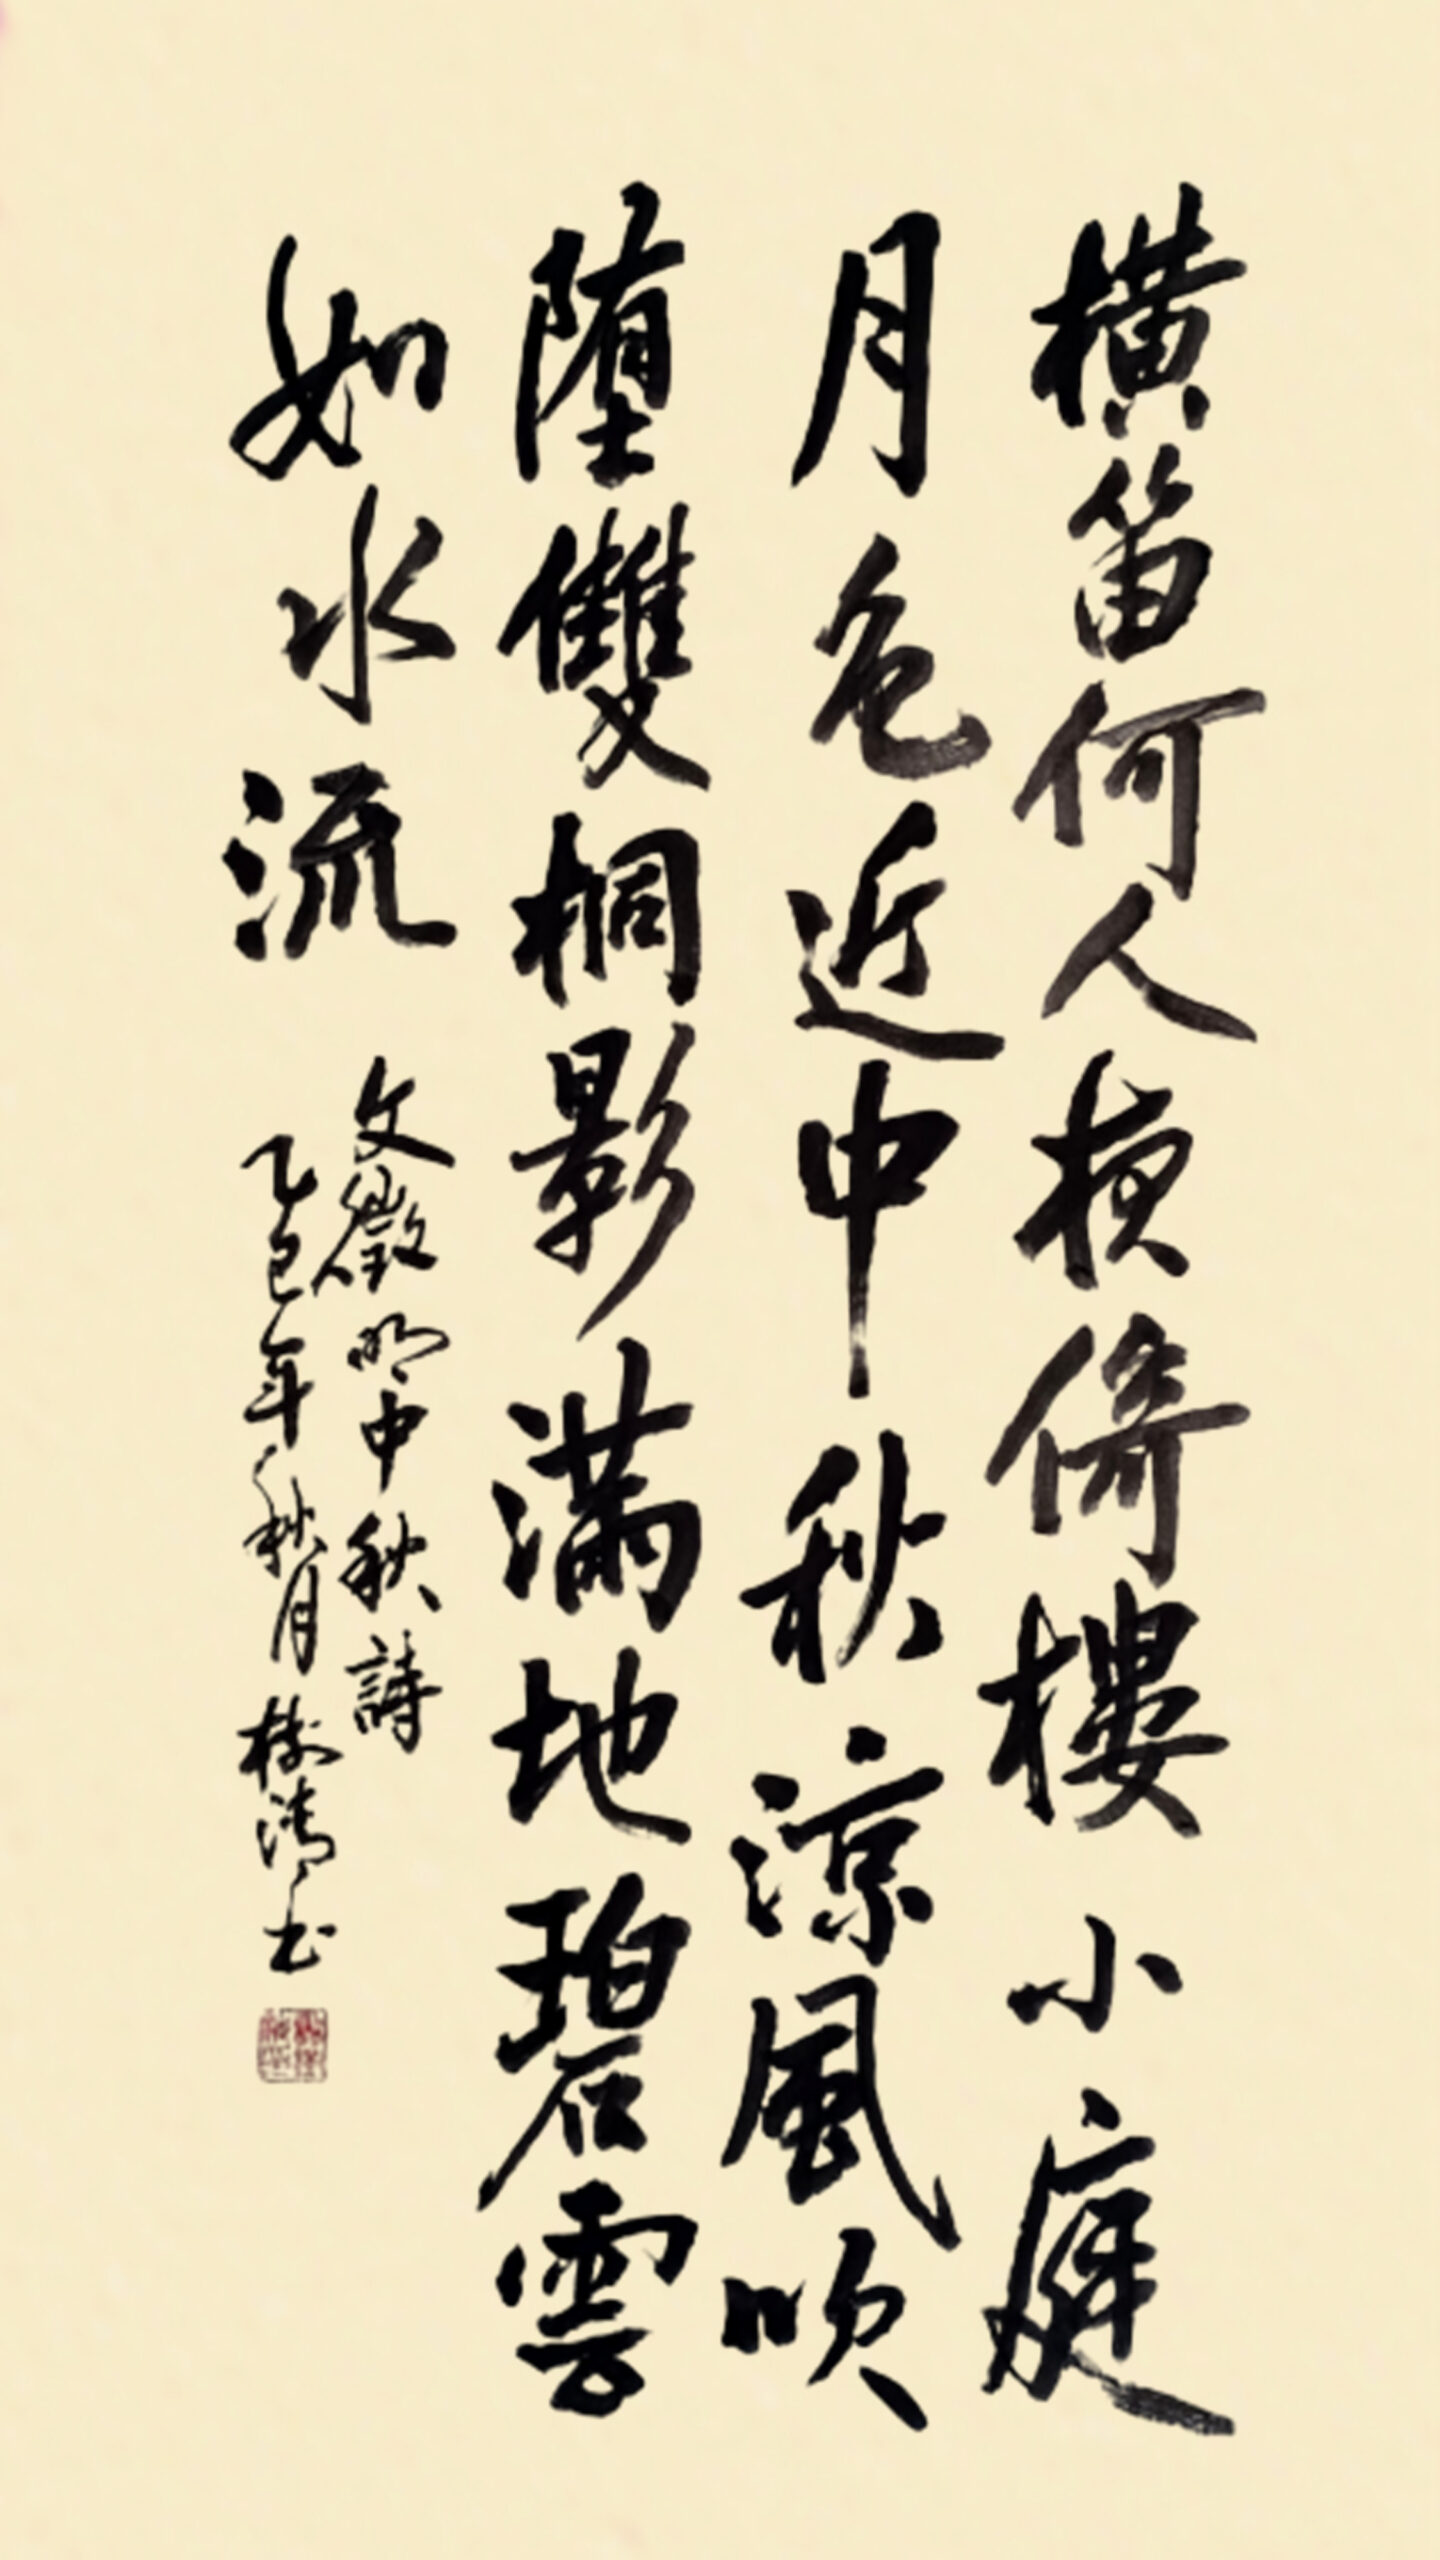 橫笛何人夜倚樓小庭
月色近中秋涼風吹
墮雙桐影滿地碧雲
如水流
文徵明中秋詩
乙巳年秋月樹清書